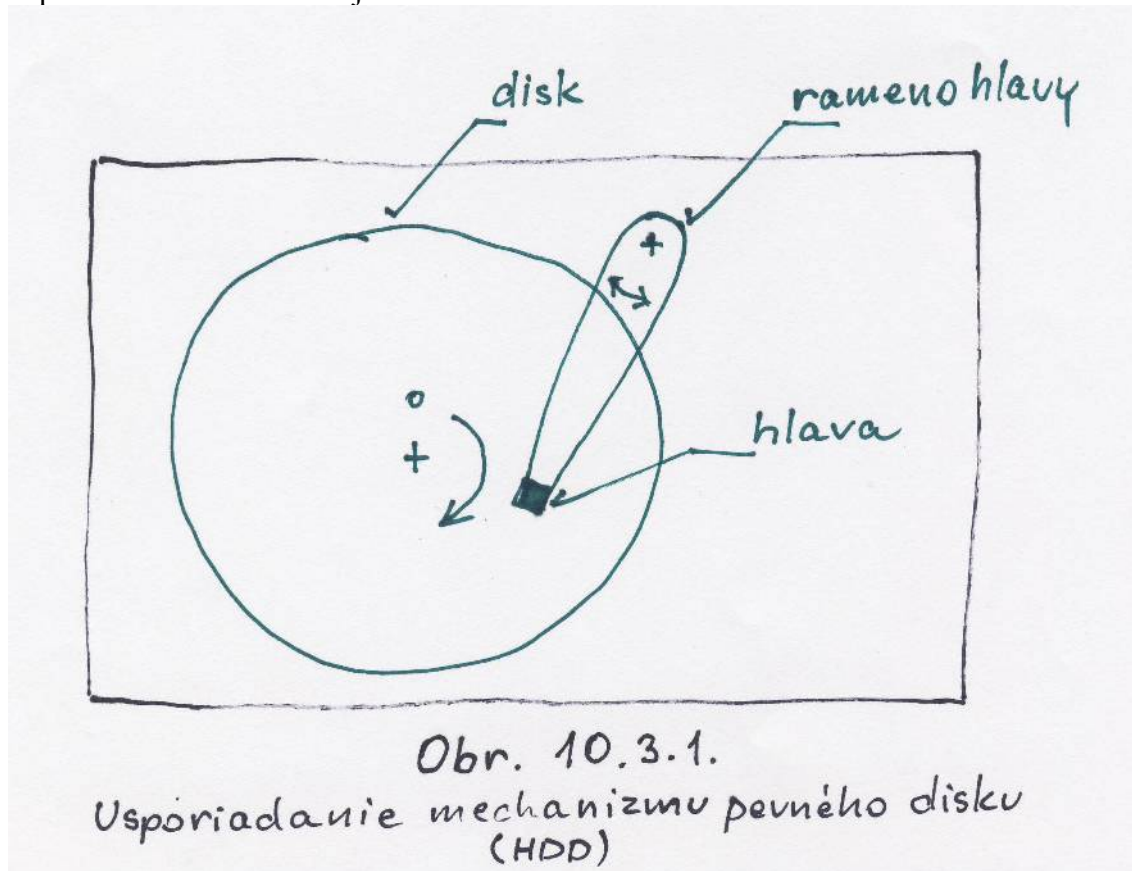 disk
rameno hlavy
hlava
Obr. 10.3.1.
Usporiadanie mechanizmu pevného disku
(HDD)